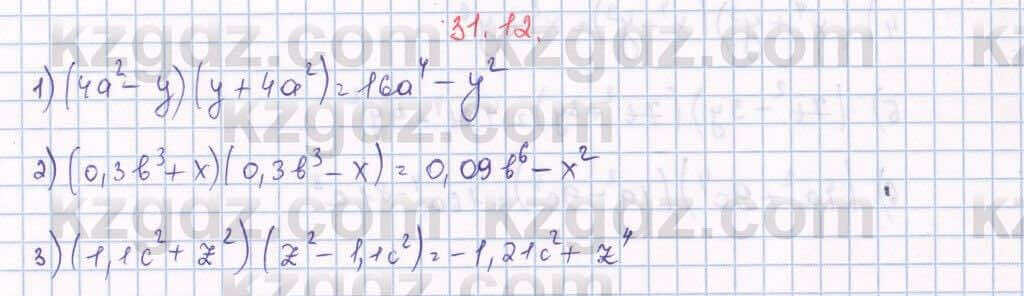 31.12.
1) (4a² - y)(y + 4a²) = 16a⁴ - y²
2) (0,3b³ + x)(0,3b³ - x) = 0,09b⁶ - x²
3) (1,1c² + z²)(z² - 1,1c²) = -1,21c² + z⁴
kzgdz.com
kzgdz.com
kzgdz.com
kzgdz.com
kzgdz.com
kzgdz.com